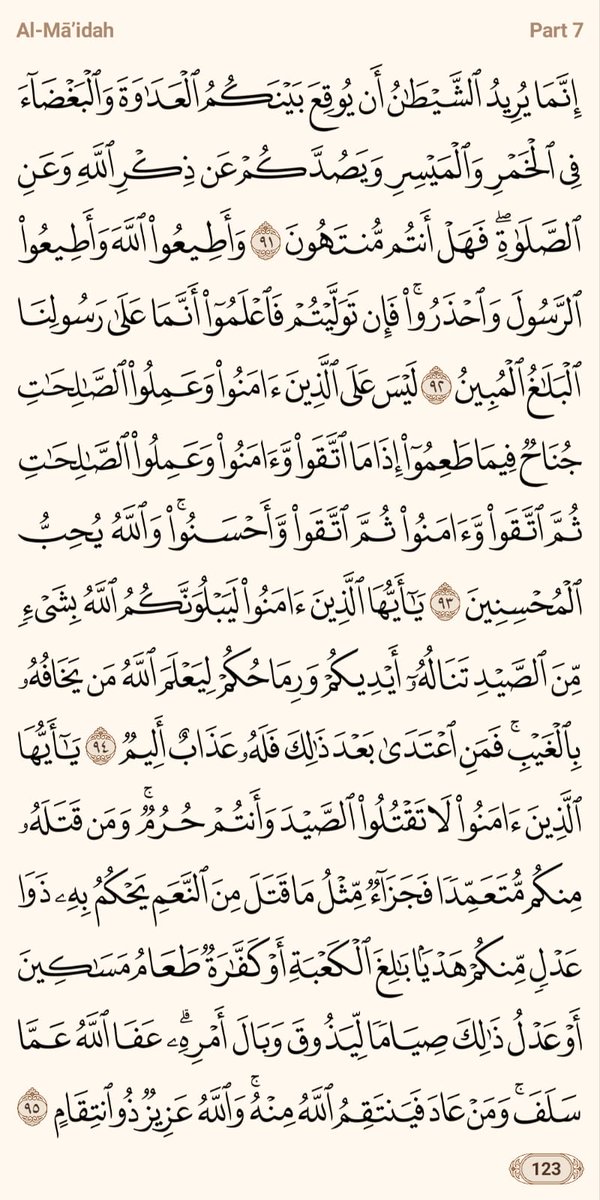 Al-Mā’idah Part 7
إِنَّمَا يُرِيدُ ٱلشَّيْطَٰنُ أَن يُوقِعَ بَيْنَكُمُ ٱلْعَدَٰوَةَ وَٱلْبَغْضَآءَ
فِى ٱلْخَمْرِ وَٱلْمَيْسِرِ وَيَصُدَّكُمْ عَن ذِكْرِ ٱللَّهِ وَعَنِ
ٱلصَّلَوٰةِ ۖ فَهَلْ أَنتُم مُّنتَهُونَ ٩١ وَأَطِيعُوا۟ ٱللَّهَ وَأَطِيعُوا۟
ٱلرَّسُولَ وَٱحْذَرُوا۟ ۚ فَإِن تَوَلَّيْتُمْ فَٱعْلَمُوٓا۟ أَنَّمَا عَلَىٰ رَسُولِنَا
ٱلْبَلَٰغُ ٱلْمُبِينُ ٩٢ لَيْسَ عَلَى ٱلَّذِينَ ءَامَنُوا۟ وَعَمِلُوا۟ ٱلصَّٰلِحَٰتِ
جُنَاحٌ فِيمَا طَعِمُوٓا۟ إِذَا مَا ٱتَّقَوا۟ وَّءَامَنُوا۟ وَعَمِلُوا۟ ٱلصَّٰلِحَٰتِ
ثُمَّ ٱتَّقَوا۟ وَّءَامَنُوا۟ ثُمَّ ٱتَّقَوا۟ وَّأَحْسَنُوا۟ ۗ وَٱللَّهُ يُحِبُّ
ٱلْمُحْسِنِينَ ٩٣ يَٰٓأَيُّهَا ٱلَّذِينَ ءَامَنُوا۟ لَيَبْلُوَنَّكُمُ ٱللَّهُ بِشَىْءٍ
مِّنَ ٱلصَّيْدِ تَنَالُهُۥٓ أَيْدِيكُمْ وَرِمَاحُكُمْ لِيَعْلَمَ ٱللَّهُ مَن يَخَافُهُۥ
بِٱلْغَيْبِ ۚ فَمَنِ ٱعْتَدَىٰ بَعْدَ ذَٰلِكَ فَلَهُۥ عَذَابٌ أَلِيمٌ ٩٤ يَٰٓأَيُّهَا
ٱلَّذِينَ ءَامَنُوا۟ لَا تَقْتُلُوا۟ ٱلصَّيْدَ وَأَنتُمْ حُرُمٌ ۚ وَمَن قَتَلَهُۥ
مِنكُم مُّتَعَمِّدًا فَجَزَآءٌ مِّثْلُ مَا قَتَلَ مِنَ ٱلنَّعَمِ يَحْكُمُ بِهِۦ ذَوَا
عَدْلٍ مِّنكُمْ هَدْيًۢا بَٰلِغَ ٱلْكَعْبَةِ أَوْ كَفَّٰرَةٌ طَعَامُ مَسَٰكِينَ
أَوْ عَدْلُ ذَٰلِكَ صِيَامًا لِّيَذُوقَ وَبَالَ أَمْرِهِۦ ۗ عَفَا ٱللَّهُ عَمَّا
سَلَفَ ۚ وَمَنْ عَادَ فَيَنتَقِمُ ٱللَّهُ مِنْهُ ۗ وَٱللَّهُ عَزِيزٌ ذُو ٱنتِقَامٍ ٩٥
123